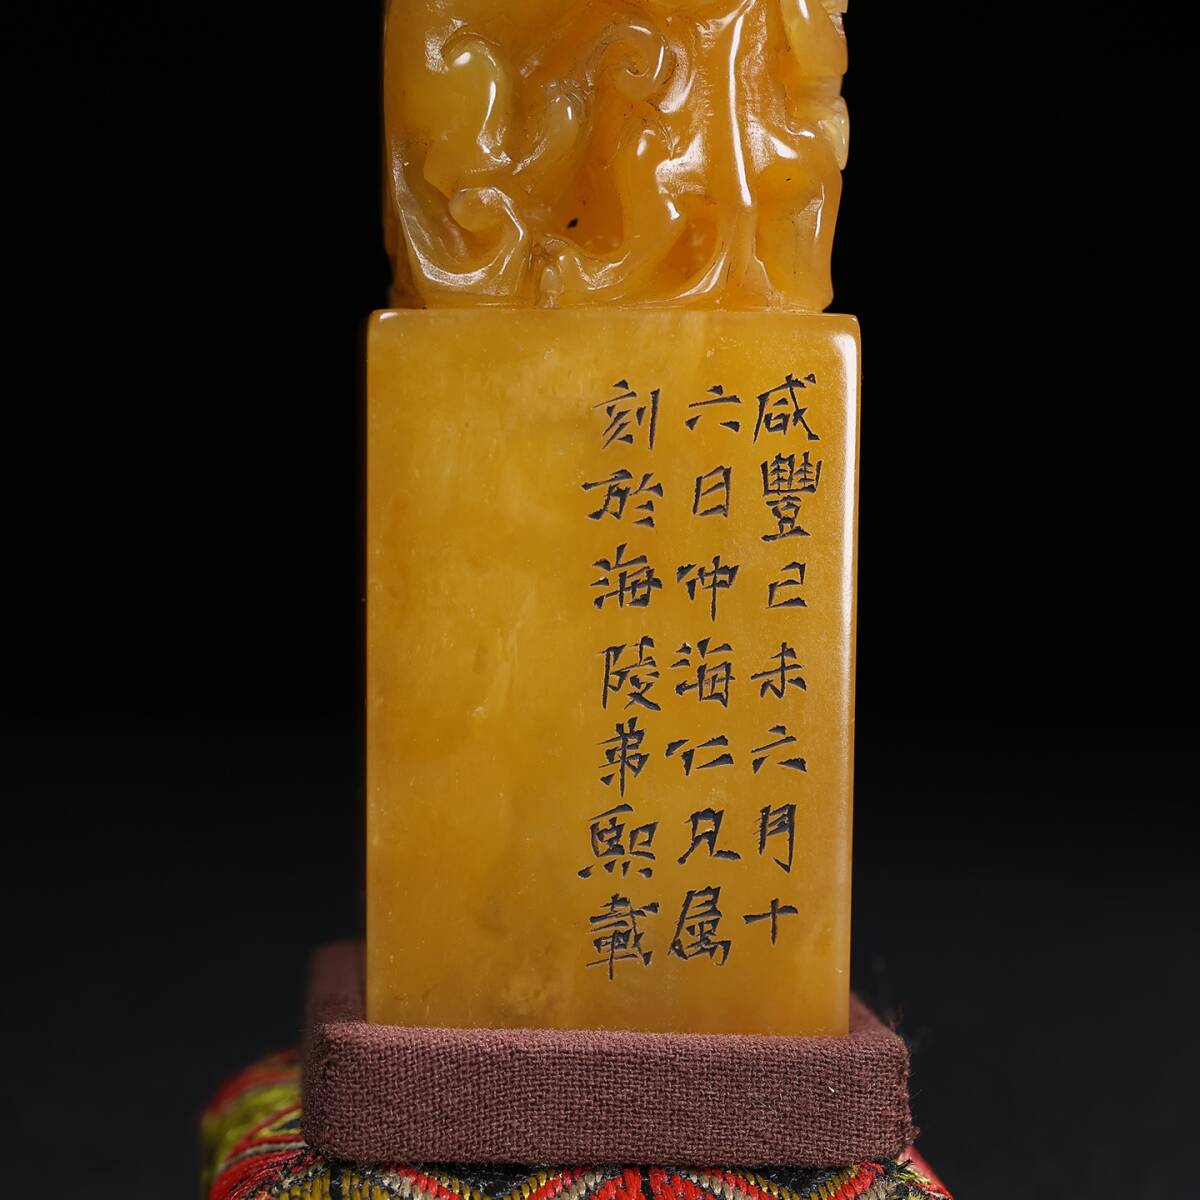 咸豐己未六月十
六日仲海仁兄屬
刻於海陵弟熙載